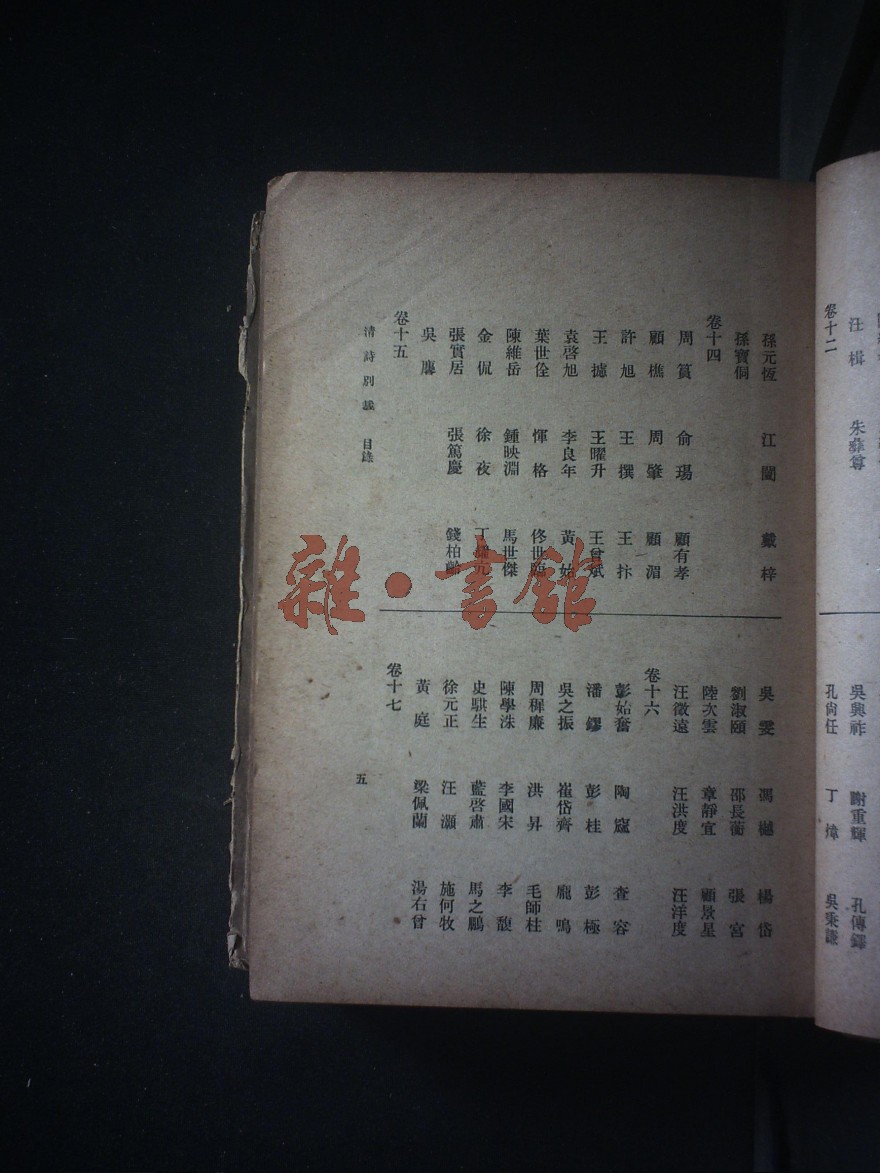 孫元恆 江闓 戴梓
孫寶侗
卷十四
周篔 俞瑒 顧有孝
顧樵 周肇 顧湄
許旭 王撰 王抃
王攄 王曜升 王曾斌
袁啓旭 李良年 黃始
葉世佺 惲格 佟世臨
陳維岳 鍾映淵 馬世傑
金侃 徐夜 丁耀亢
張實居 張篤慶 錢柏齡
吳麐
卷十五
清詩別裁 目錄
吳雯 馮樾 楊岱
劉淑頤 邵長蘅 張宮
陸次雲 章靜宜 顧景星
汪徵遠 汪洪度 汪洋度
卷十六
彭始奮 陶窳 查容
潘鏐 彭桂 彭極
吳之振 崔岱齊 龐鳴
周稺廉 洪昇 毛師柱
陳學洙 李國宋 李馥
史騏生 藍啓肅 馬之鵬
徐元正 汪灝 施何牧
黃庭 梁佩蘭 湯右曾
卷十七
五
汪楫 朱彝尊
卷十二
吳興祚 謝重輝 孔傳鐸
孔尚任 丁煒 吳秉謙
雜·書館